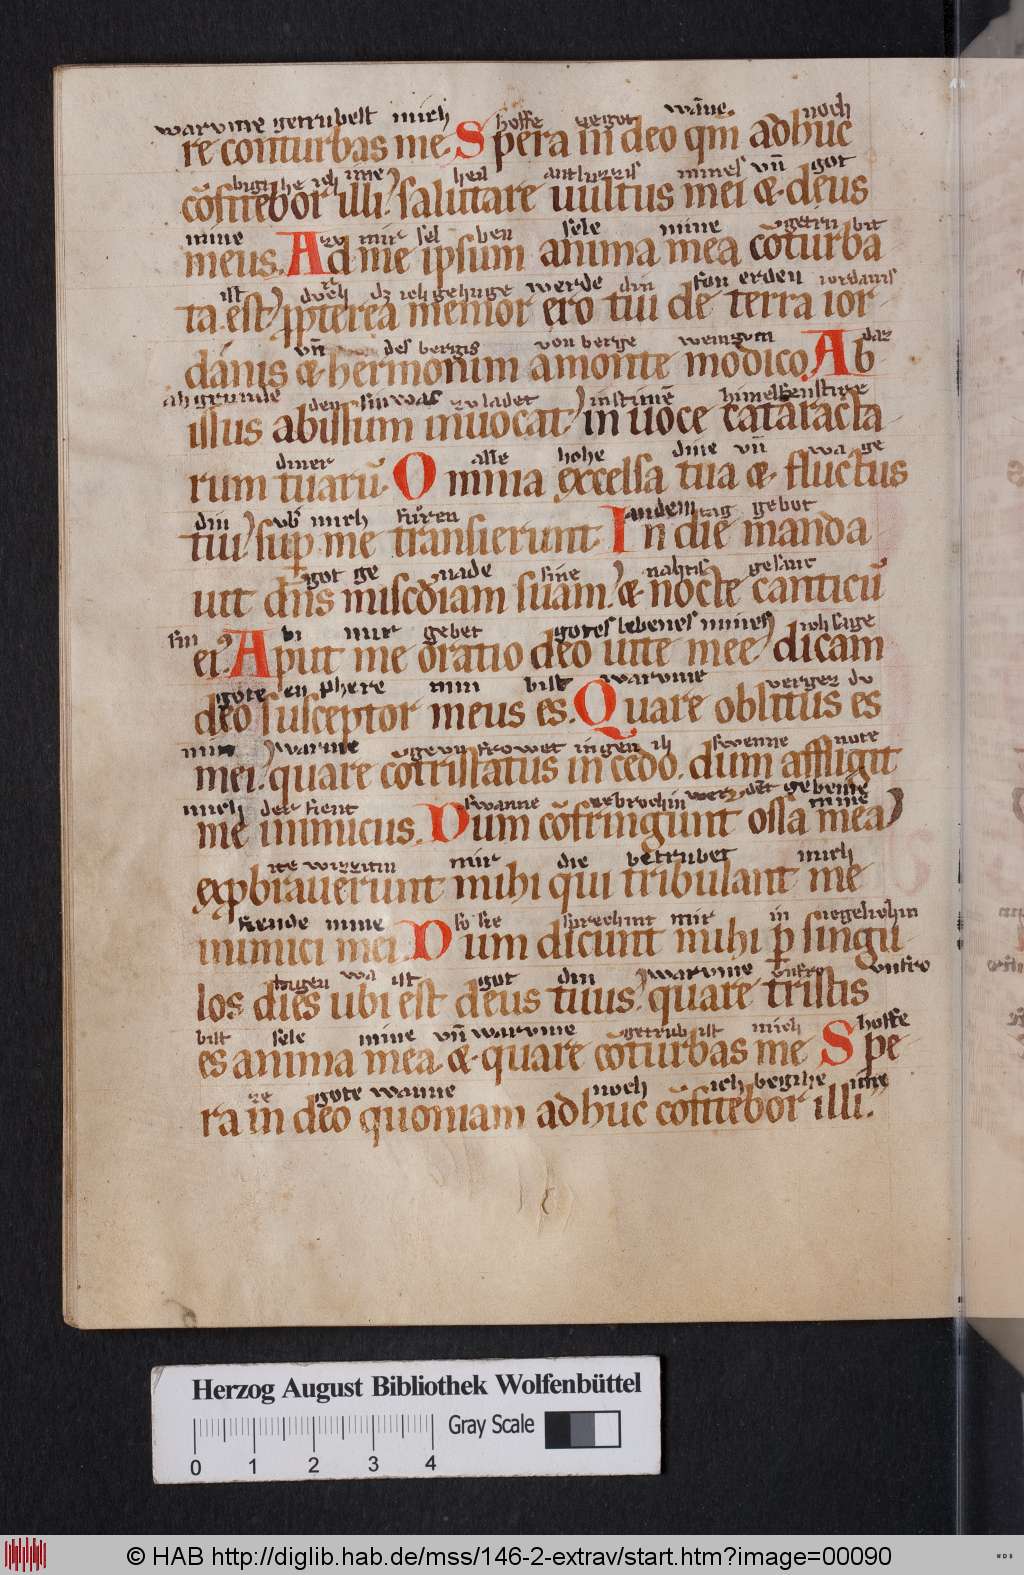 warvme getrubest mich hoffe zegot wāne noch
re conturbas me. Spera in deo qm̄ adhuc
bigihe ich ime heil antluzzis mines vn̄ got
cōfitebor illi. salutare uultus mei & deus
mine zv mir sel ben sele mine getru bit
meus. Ad me ipsum anima mea cōturba
ist dz ich gehuge werde din fon erden iordanis
ta est. ppterea memor ero tui de terra ior
vn̄ des bergis von berge wenigem daz
danis & hermonim amonte modico. Ab
abgrunde den zvladet
issus abissum inuocat in uoce cataracta
diner alle hohe dine vn̄ wa ge
rum tuarū. Omnia excelsa tua & fluctus
din mich fůren andem tag gebot
tui sup me transierunt. In die manda
got ge nade sine nahtis gesanc
uit dn̄s mīscdiam suam. & nocte canticū
sin bi mir gebet gotes lebenes mines ich sage
ei9. Aput me oratio deo uite mee dicam
gote en phere min bist warvme verger dv
deo susceptor meus es. Quare oblitus es
min warme ingen ih swenne note
mei. quare cōtristatus incedo. dum affligit
mich der fient swanne zebrochin gebeine mine
me inimicus. Dum cōfringunt ossa mea
ite wizzitin mir die betrubet mich
expbrauerunt mihi qui tribulant me
fiende mine so sie sprechint mir in iegelichin
inimici mei. Dum dicunt mihi p singu
tagen wa ist got din warvme vnfro vnfro
los dies ubi est deus tuus. quare tristis
bist sele mine vn̄ warvme getrub ist mich hoffe
es anima mea & quare cōturbas me Spe
ze gote wanne noch ich begihe ime
ra in deo quoniam adhuc cōfitebor illi.
Herzog August Bibliothek Wolfenbüttel
Gray Scale
0 1 2 3 4
© HAB http://diglib.hab.de/mss/146-2-extrav/start.htm?image=00090